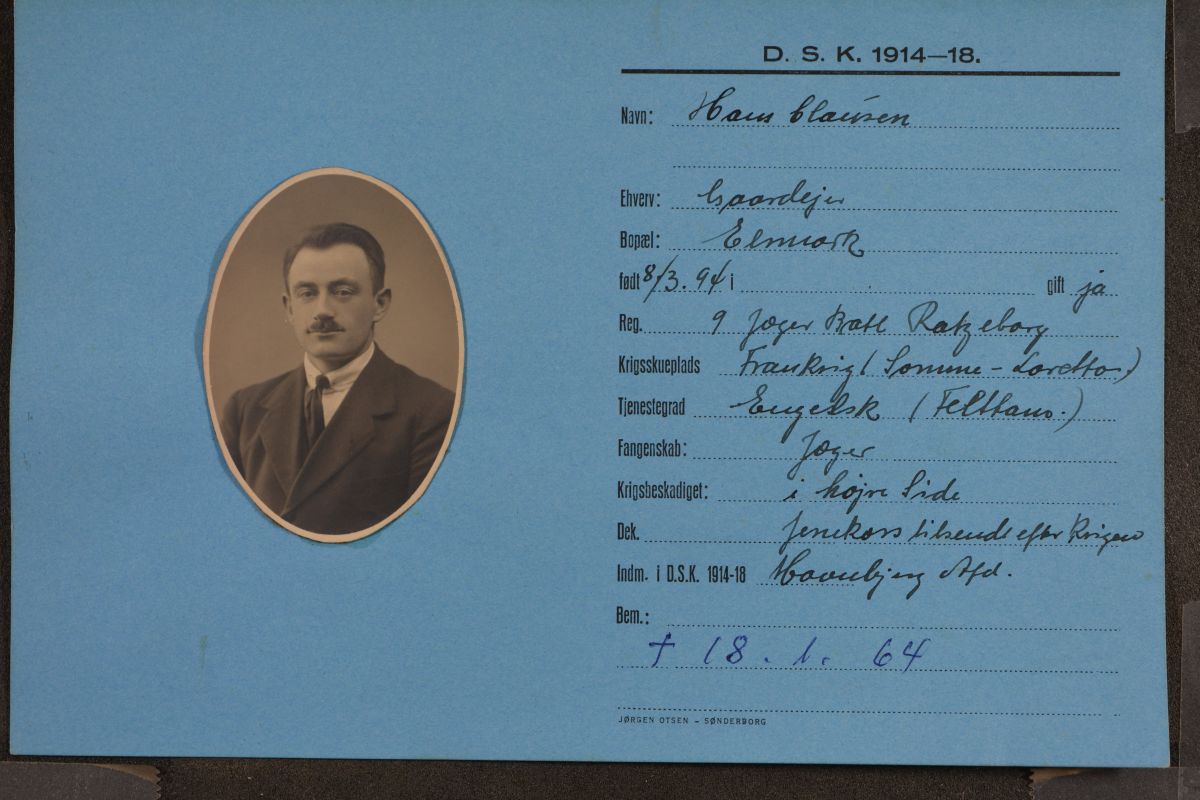 D. S. K. 1914—18.
Navn: Hans Clausen
Ehverv: Gaardejer
Bopæl: Elsmark
født 8/3. 94 i gift ja
Reg. 9 Jæger Batl Ratzeborg
Krigsskueplads Frankrig (Somme - Loretto)
Tjenestegrad Engelsk (Felttans.)
Fangenskab: Jæger
Krigsbeskadiget: i højre Side
Dek. Jernkors tilsendt efter Krigen
Indm. i D.S.K. 1914-18 Havnbjerg Afd.
Bem.:
† 18. 1. 64
JØRGEN OTSEN - SØNDERBORG